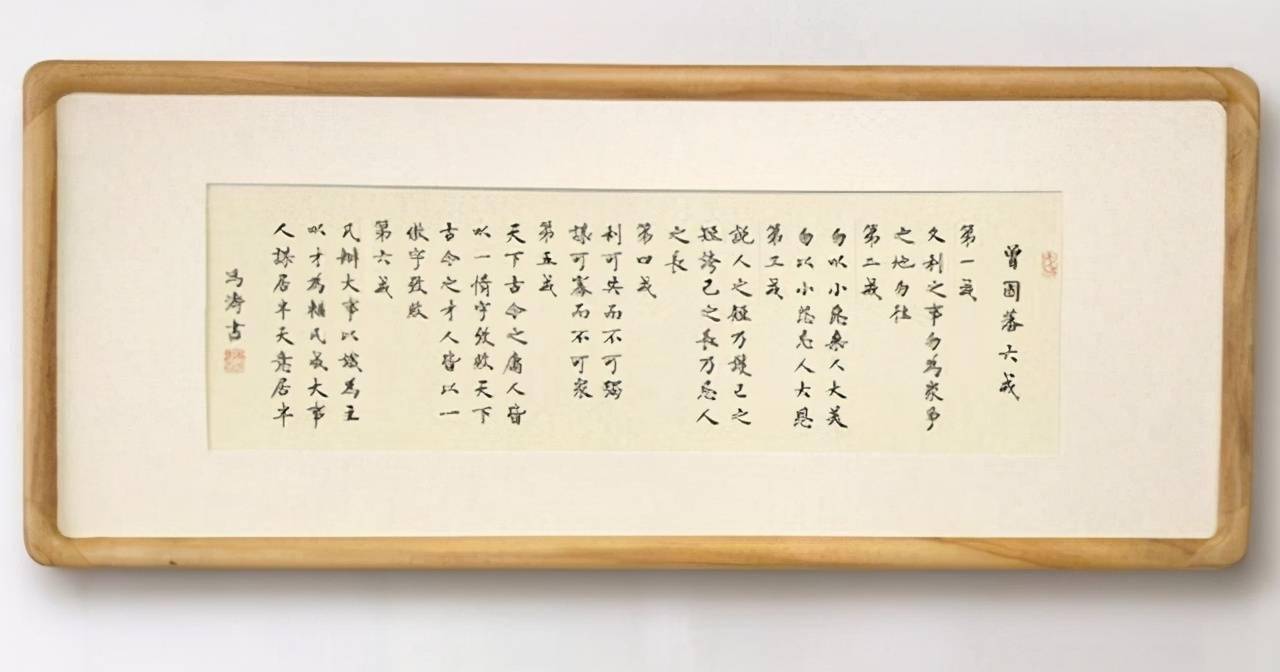 曾国藩六戒
第一戒
久利之事勿為眾爭
之地勿往
第二戒
勿以小惡棄人大美
勿以小怨忘人大恩
第三戒
說人之短乃護己之
短誇己之長乃忌人
之長
第四戒
利可共而不可獨
謀可寡而不可眾
第五戒
天下古今之庸人皆
以一惰字致敗天下
古今之才人皆以一
傲字致敗
第六戒
凡辦大事以識為主
以才為輔凡成大事
人謀居半天意居半
馮濤書